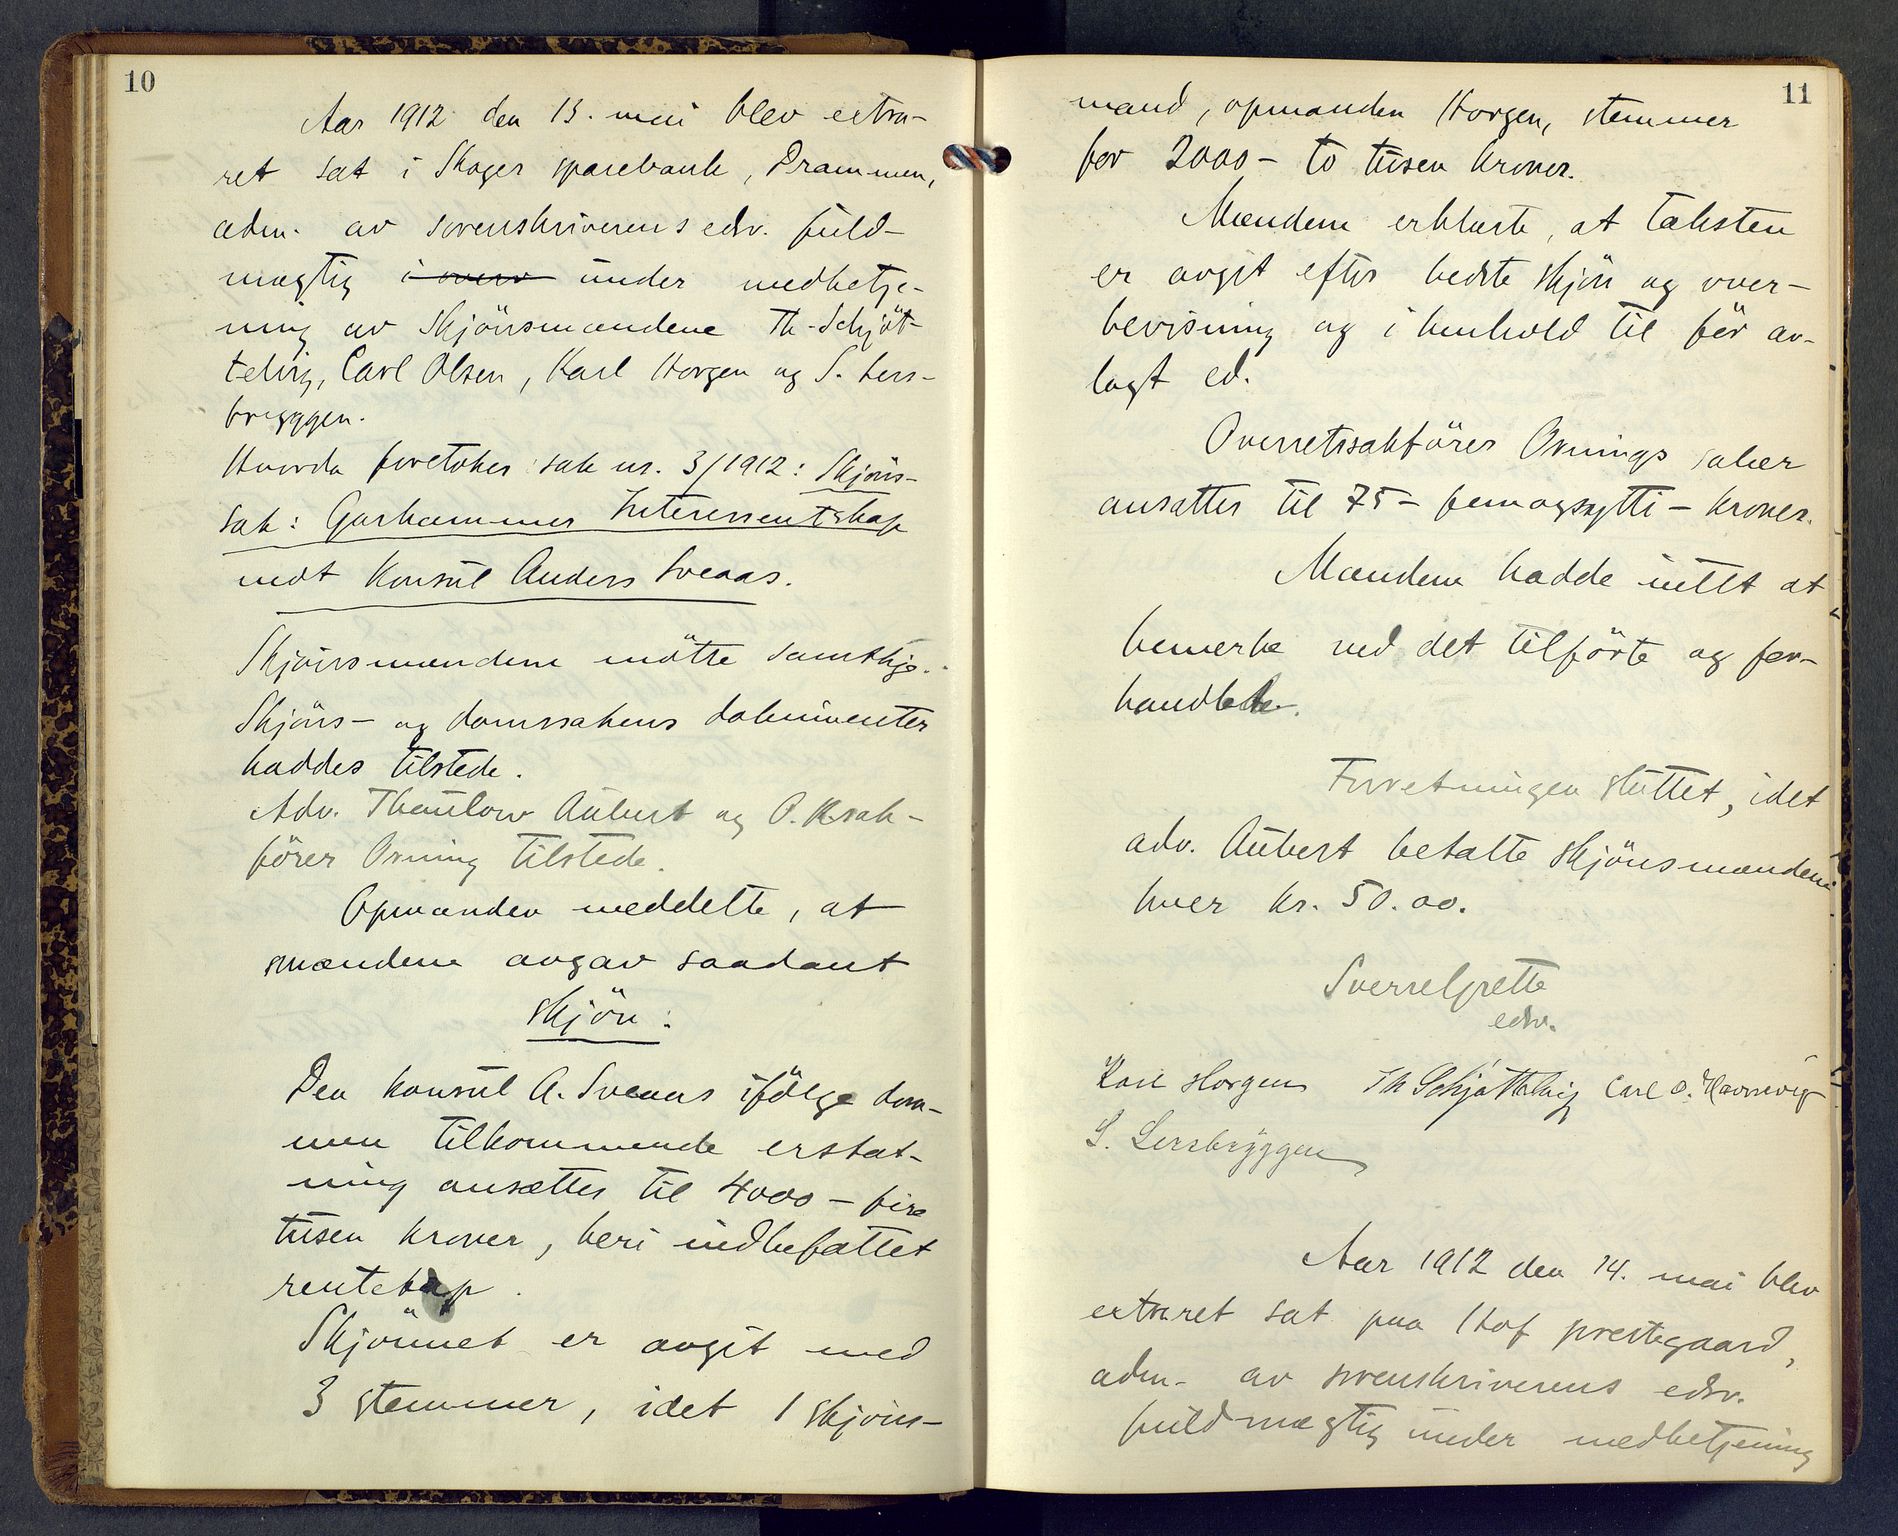 10
Aar 1912 den 13. mai blev extra-
ret sat i Skoger sparebank, Drammen,
adm. av sorenskriverens edsv. fuld-
mægtig i over under medbetje-
ning av skjönsmændene Th. Schjöt-
telvig, Carl Olsen, Karl Horgen og S. Lers-
bryggen.
Hvorda foretokes sak nr. 3/1912: Skjöns-
sak: Garhammer Interessentskap
mot Konsul Anders Sveaas.
Skjönsmændene mötte samtlige.
Skjöns- og domssakens dokumenter
haddes tilstede.
Adv. Thaulow Aubert og O.R.sak-
förer Orning tilstede.
Opmanden meddelte, at
mændene avgav saadant
skjön:
Den konsul A. Sveaas ifölge dom-
men tilkommende erstat-
ning ansættes til 4000 - fire
tusen kroner, heri indbefattet
rentetap.
Skjönnet er avgit med
3 stemmer, idet 1 skjöns-
11
mand, opmanden Horgen, stemmer
for 2000 - to tusen kroner.
Mændene erklærte, at taksten
er avgit efter bedste skjön og over-
bevisning og i henhold til för av-
lagt ed.
Overretssakförer Ornings salær
ansættes til 75 - femogsytti - kroner.
Mændene hadde intet at
bemerke ved det tilförte og for-
handlede.
Forretningen sluttet, idet
adv. Aubert betalte skjönsmændene
hver kr. 50.00.
Sverre Grette
edsv.
Karl Horgen Th Schjøttelvig Carl O. Havnevig
S. Lersbryggen
Aar 1912 den 14. mai blev
extraret sat paa Hof prestegaard,
adm. av sorenskriverens edsv.
fuldmægtig under medbetjening